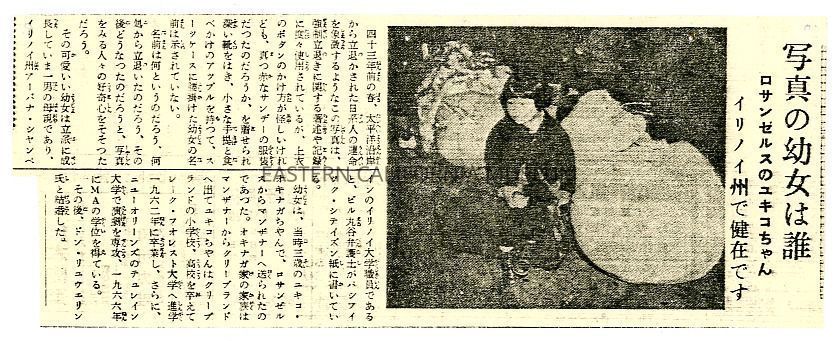 写真の幼女は誰
ロサンゼルスのユキコちゃん
イリノイ州で健在です
四十三年前の春、太平洋沿岸
から立退かされた日系人の運命
を象徴するようなこの写真は、
強制立退きに関する著述や記録
に度々使用されているが、上衣
のボタンのかけ方が怪しいけれ
ども、真つ赤なサンデーの服装
だつたのだろうか、を着せられ
深い靴をはき、小さな手提と食
べかけのアップルを持つて、ス
ーツケースに腰掛けた幼女の名
前は示されていない。
名前は何というのだろう、何
処から立退いたのだろう、その
後どうなつたのだろうと、写真
をみる人々の好奇心をそそつた
だろう。
その可愛いい幼女は立派に成
長していま一男の母親であり、
イリノイ州アーバナ・シャンペ
ンのイリノイ大学職員である
と、ビル丸谷弁護士がパシフイ
ク・シチズン紙に書いてい
る。
幼女は、当時三歳のユキコ・
オキナガちやんで、ロサンゼル
スからマンザナーへ送られたの
であつた。オキナガ家の家族は
マンザナーからクリーブランド
へ出てユキコちやんはクリーブ
ランドの小学校、高校を卒えて
レーク・フオレスト大学へ進学
一九六二年に卒業し、さらに、
ニューオリーンズのチュレイン
大学で演劇を専攻、一九六六年
にMAの学位を得ている。
その後、ドン・リュウエリン
氏と結婚した。
EASTERN CALIFORNIA